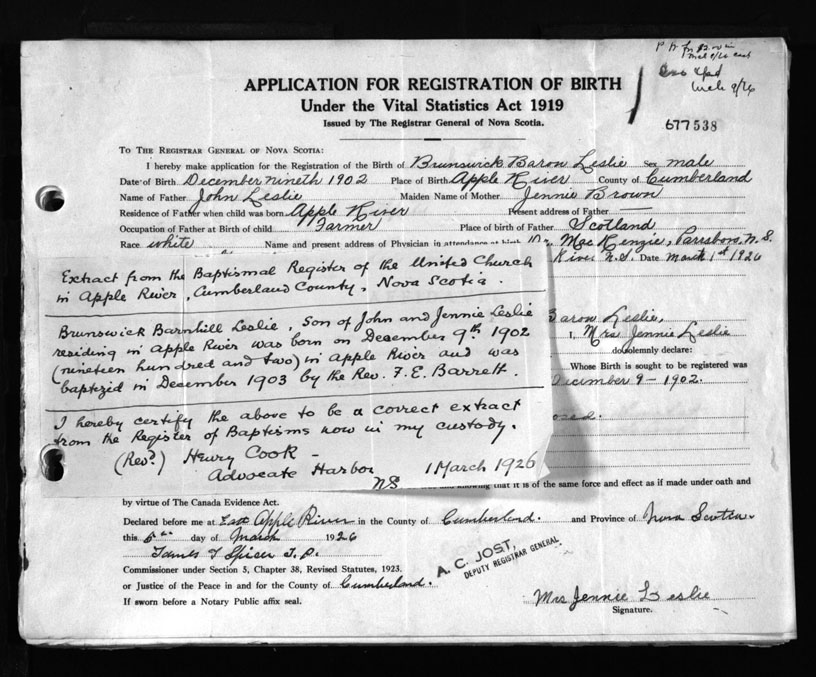 Mch 9/26
APPLICATION FOR REGISTRATION OF BIRTH
Under the Vital Statistics Act 1919
Issued by The Registrar General of Nova Scotia.
677538
TO THE REGISTRAR GENERAL OF NOVA SCOTIA:
I hereby make application for the Registration of the Birth of Brunswick Baron Leslie Sex male
Date of Birth December nineth 1902 Place of Birth Apple River County of Cumberland
Name of Father John Leslie Maiden Name of Mother Jennie Brown
Residence of Father when child was born Apple River Present address of Father
Occupation of Father at Birth of child Farmer Place of birth of Father Scotland
Race white Name and present address of Physician in attendance at birth Dr. MacKenzie, Parrsboro, N.S.
River N.S. Date March 1st 1926
Extract from the Baptismal Register of the United Church
in Apple River, Cumberland County, Nova Scotia.
Brunswick Barnhill Leslie, Son of John and Jennie Leslie
residing in Apple River was born on December 9th 1902
(nineteen hundred and two) in Apple River and was
baptized in December 1903 by the Rev. F. E. Barrett.
I hereby certify the above to be a correct extract
from the Register of Baptisms now in my custody.
(Revd.) Henry Cook -
Advocate Harbor 1 March 1926
NS
Baron Leslie,
I, Mrs Jennie Leslie
do solemnly declare:
Whose Birth is sought to be registered was
December 9 - 1902.
knowing that it is of the same force and effect as if made under oath and
by virtue of The Canada Evidence Act.
Declared before me at East Apple River in the County of Cumberland. and Province of Nova Scotia.
this 5th day of March 1926
James T Spicer J.P.
Commissioner under Section 5, Chapter 38, Revised Statutes, 1923.
or Justice of the Peace in and for the County of Cumberland.
If sworn before a Notary Public affix seal.
A. C. JOST,
DEPUTY REGISTRAR GENERAL.
Mrs Jennie Leslie
Signature.